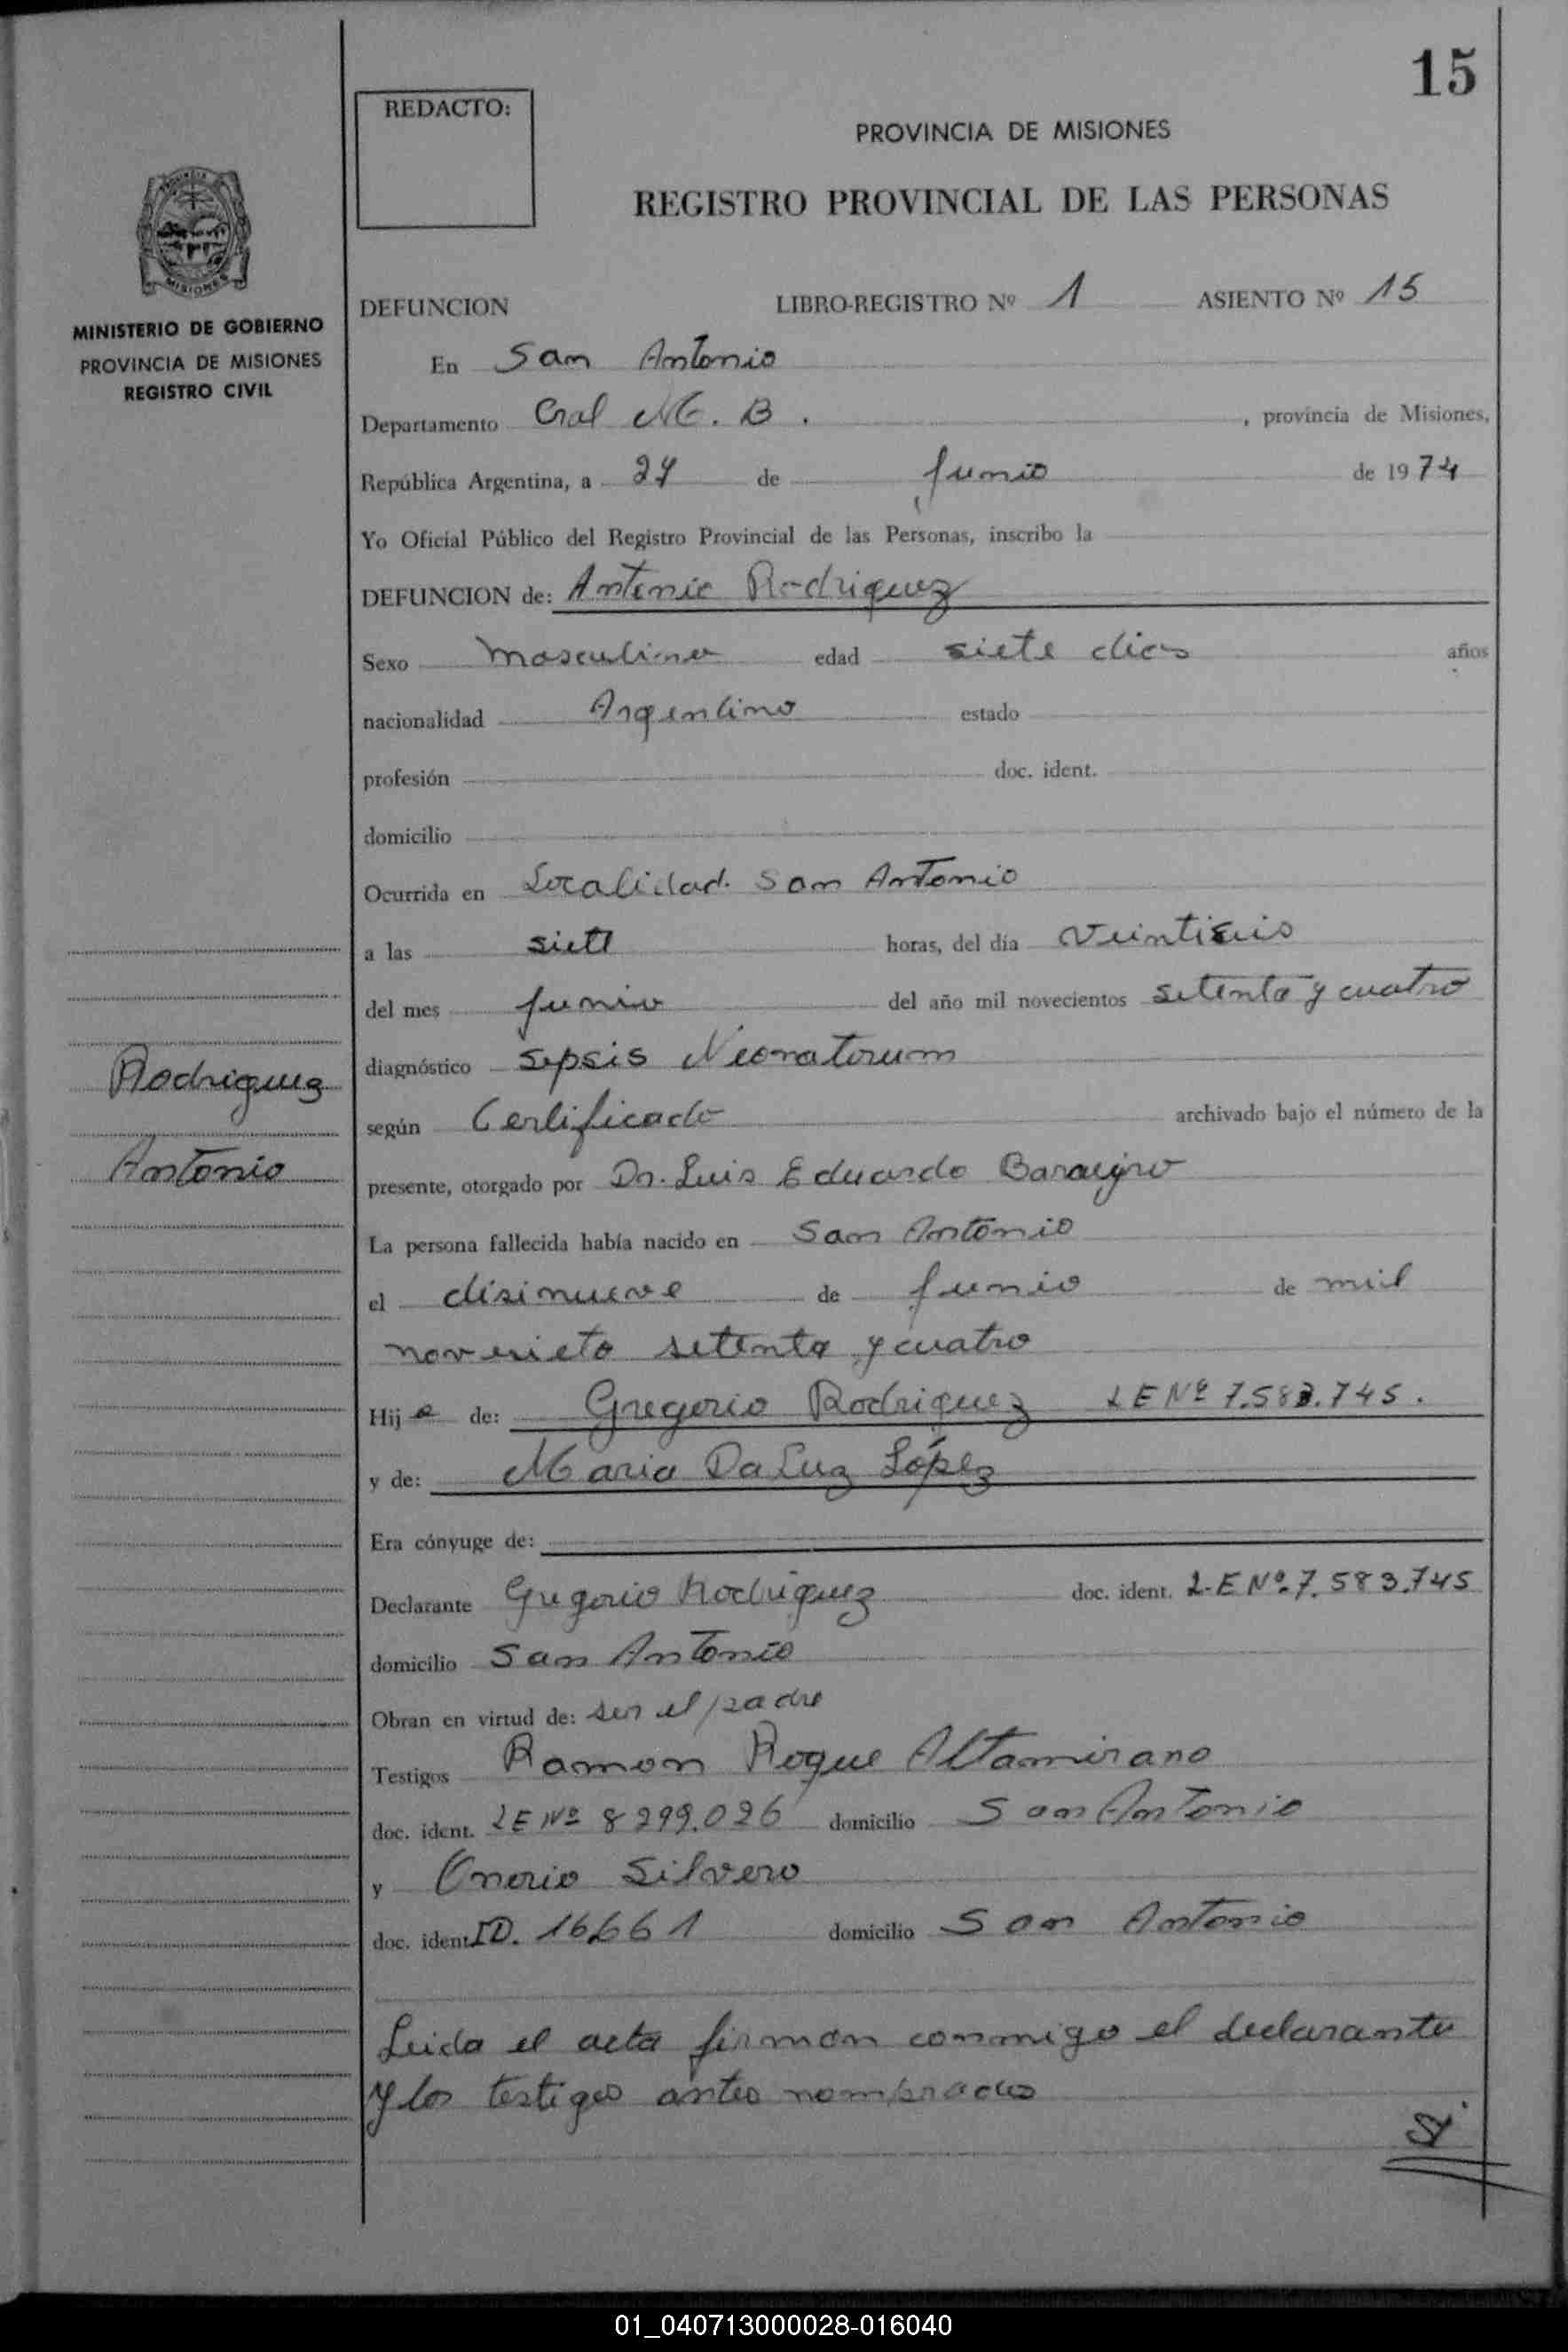 15
REDACTO:
PROVINCIA DE MISIONES
REGISTRO PROVINCIAL DE LAS PERSONAS
MISIONES
MINISTERIO DE GOBIERNO
PROVINCIA DE MISIONES
REGISTRO CIVIL
DEFUNCION LIBRO-REGISTRO Nº 1 ASIENTO Nº 15
En San Antonio
Departamento Gral M. B. , provincia de Misiones,
República Argentina, a 27 de Junio de 1974
Yo Oficial Público del Registro Provincial de las Personas, inscribo la
DEFUNCION de: Antonio Rodriguez
Sexo Masculino edad siete dias años
nacionalidad Argentino estado
profesión doc. ident.
domicilio
Ocurrida en Localidad. San Antonio
a las siete horas, del día veintiseis
del mes Junio del año mil novecientos setenta y cuatro
diagnóstico sepsis Neonatorum
según Certificado archivado bajo el número de la
presente, otorgado por Dr. Luis Eduardo
La persona fallecida había nacido en San Antonio
el disinueve de Junio de mil
setenta y cuatro
Hijo de: Gregorio Rodriguez LE Nº 7.583.745.
y de: Maria Da Luz López
Era cónyuge de:
Declarante Gregorio Rodriguez doc. ident. L-E Nº.7.583.745
domicilio San Antonio
Obran en virtud de: ser el padre
Testigos Ramon Roque Altamirano
doc. ident. LE Nº 8299.026 domicilio San Antonio
y Onerio Silvero
doc. ident. ID. 16661 domicilio San Antonio
Leida el acta firman conmigo el declarante
y los testigos antes nombrados
Rodriguez
Antonio
01_040713000028-016040